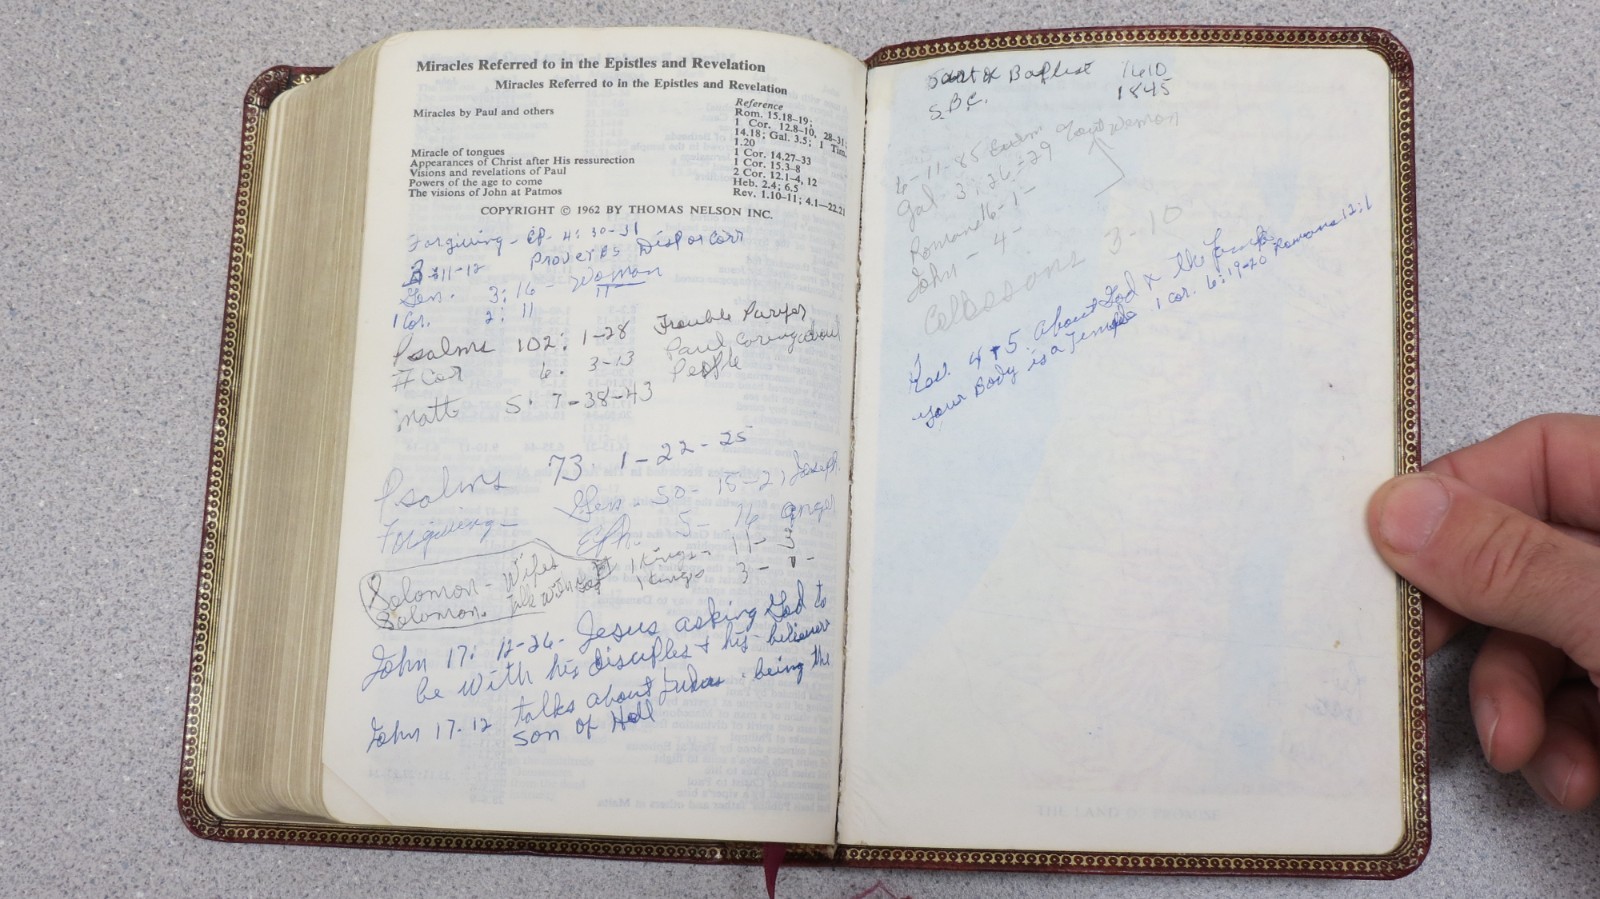 Miracles Referred to in the Epistles and Revelation
Miracles Referred to in the Epistles and Revelation
Reference
Miracles by Paul and others Rom. 15.18–19;
1 Cor. 12.8–10, 28–31;
14.18; Gal. 3.5; 1 Tim.
1.20
Miracle of tongues 1 Cor. 14.27–33
Appearances of Christ after His ressurection 1 Cor. 15.3–8
Visions and revelations of Paul 2 Cor. 12.1–4, 12
Powers of the age to come Heb. 2.4; 6.5
The visions of John at Patmos Rev. 1.10–11; 4.1—22.21
COPYRIGHT © 1962 BY THOMAS NELSON INC.
Forgiving - EP. 4: 30-31
3:11-12 Proverbs
Gen. 3:16 - Woman
1 Cor. 2: 11 "
Psalms 102: 1-28 Trouble
Cor 6: 3-13 Paul
People
Matt 5: 7-38-43
Psalms 73 1-22-25
Forgiving - Gen. 50- 15-21 Joseph
Eph. 5- 16
Solomon - Wifes 1 Kings - 11- 3
Solomon. Talk with God 1 Kings 3 -
John 17: 12-26- Jesus asking God to
be with his disciples + his believers
John 17-12 talks about Judas. being the
son of Hell
Baptist 1610
S.B.C. 1845
6-11-85 about Woman
Gal - 3: 26-29
Romans 16-1-
John - 4-
3-10
Rev. 4+5 about God & the
your Body is a Temple 1 Cor. 6:19-20 Romans 12:1
THE LAND OF PROMISE